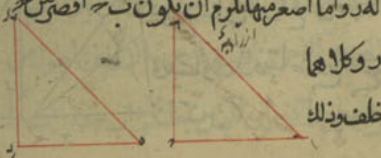 له ر واما اصغر منها يلزم ان يكون ب ح اقصر من
ر وكلاهما
خلف وذلك